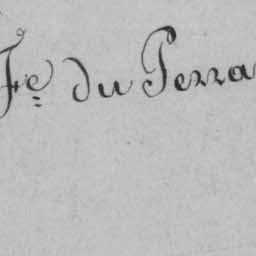 Fe du Perra